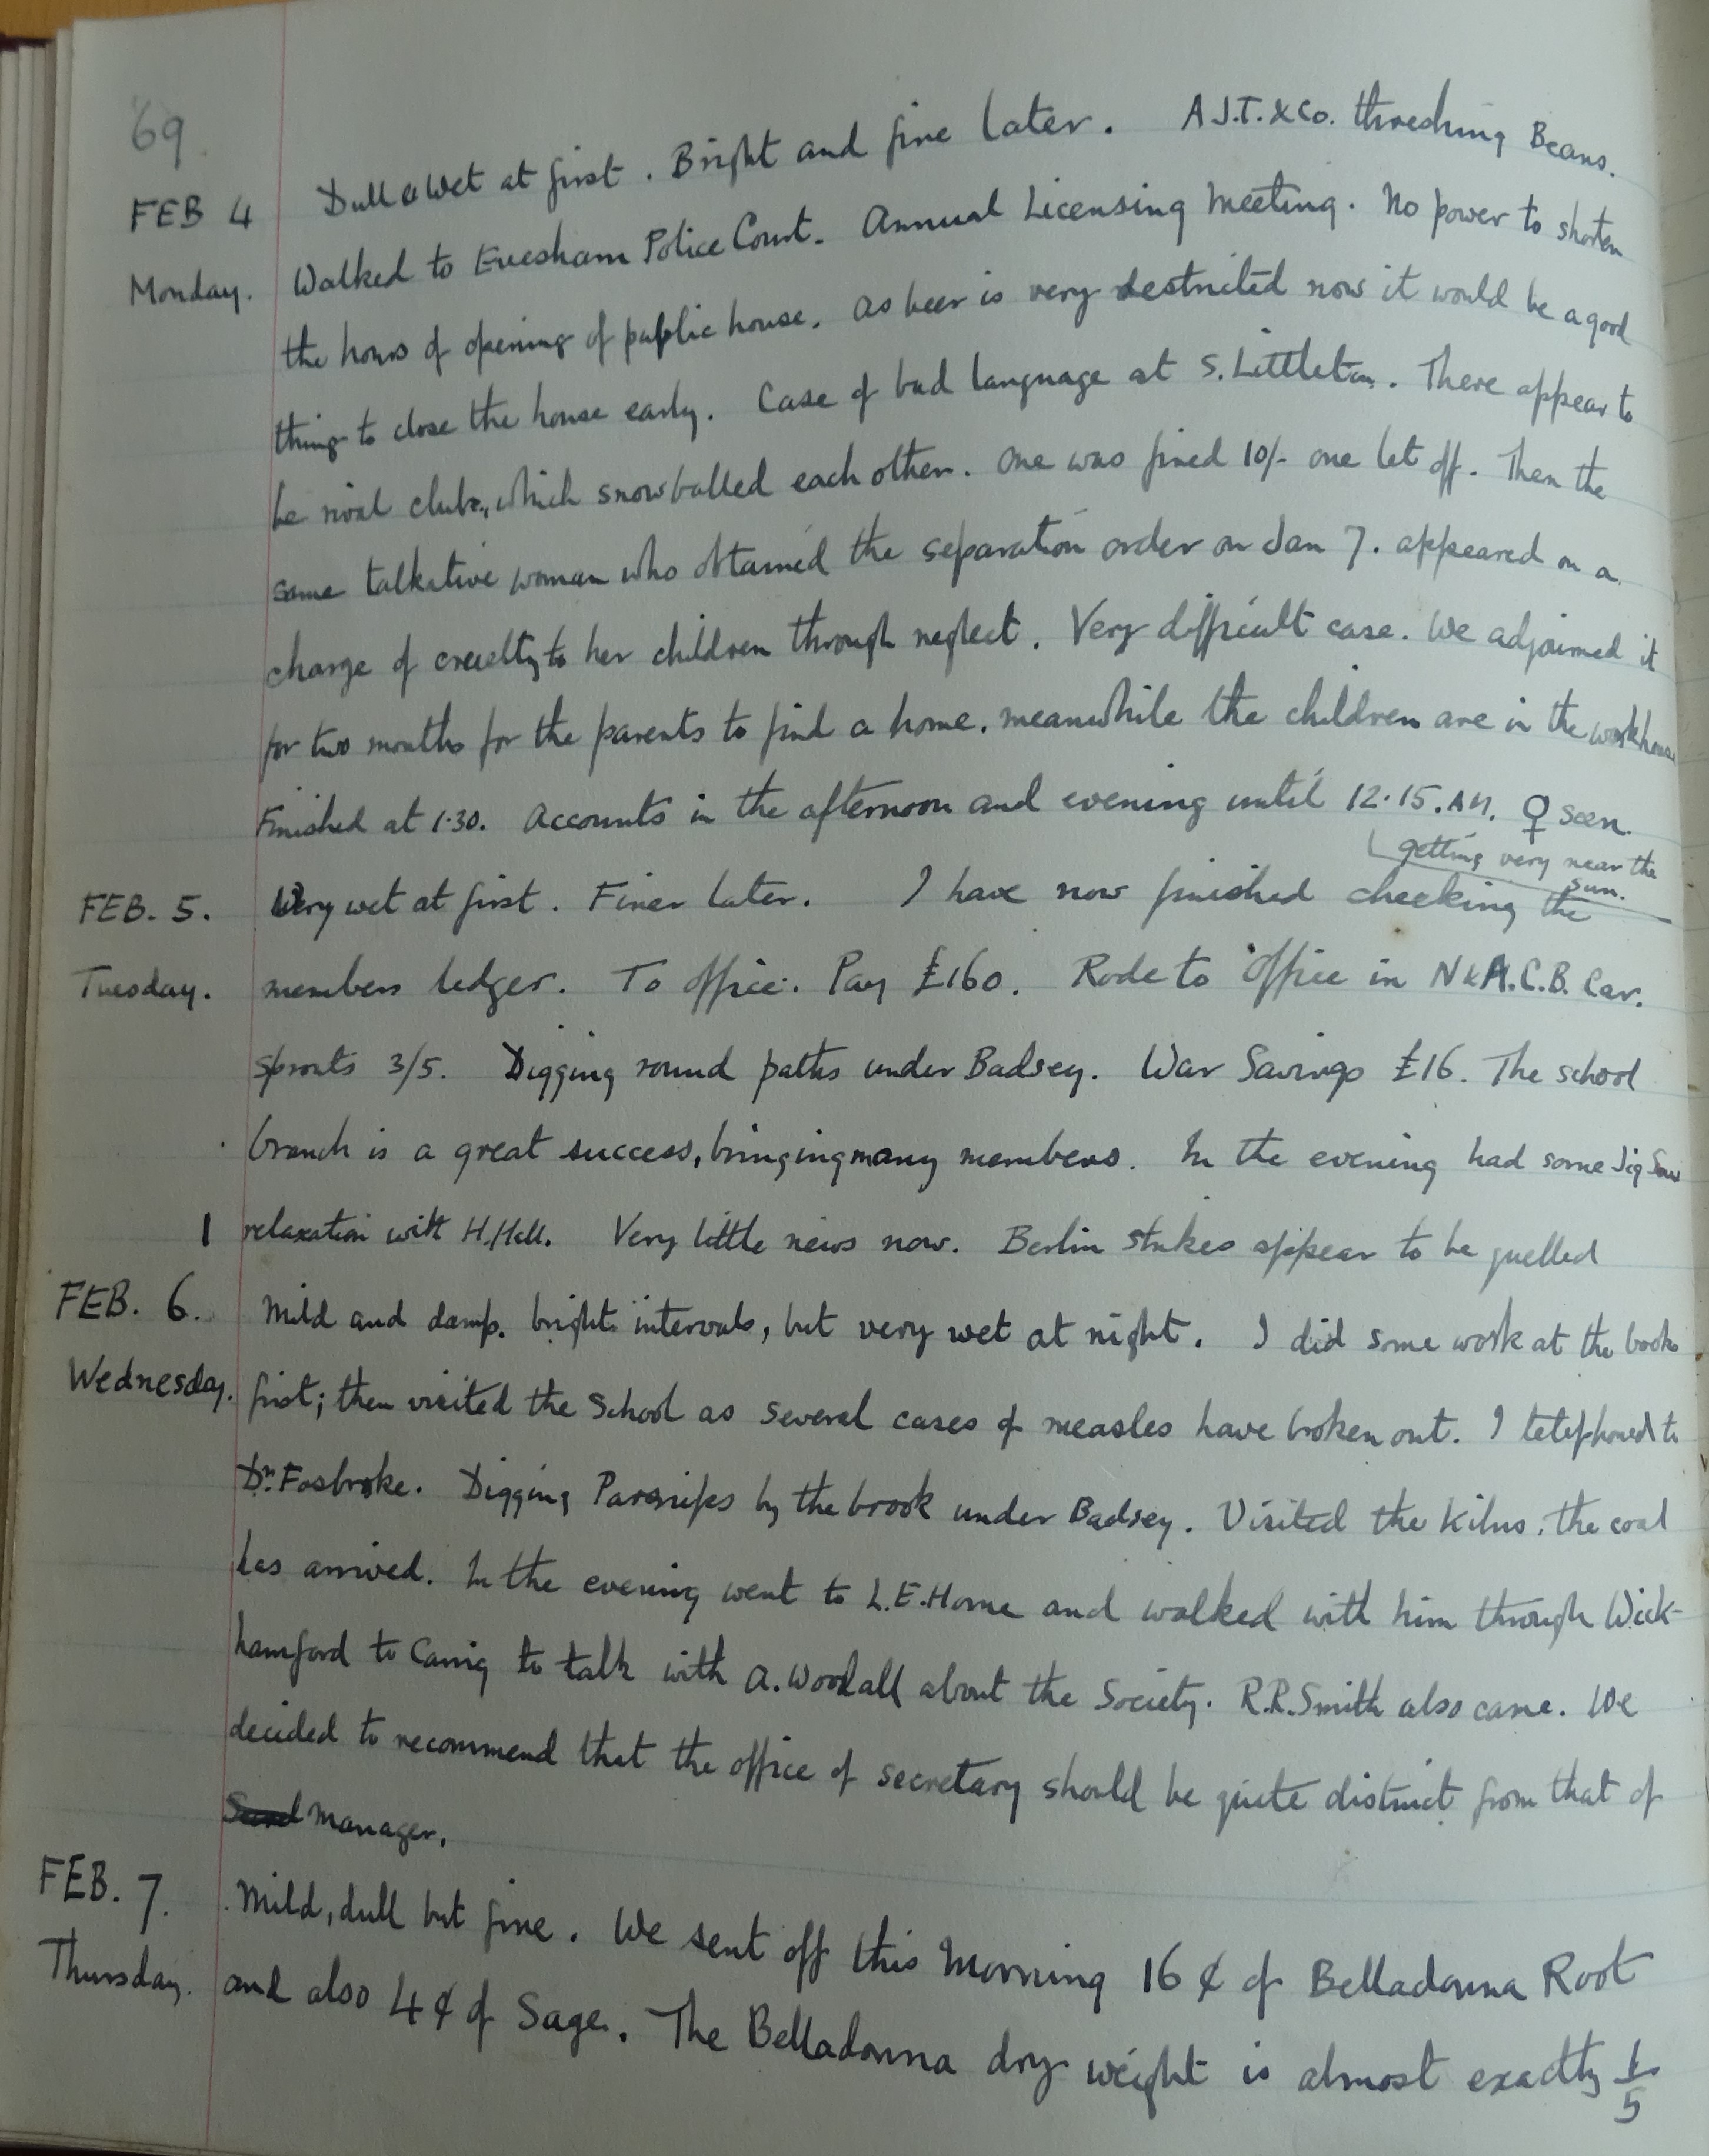 69.
FEB 4 Dull & Wet at first. Bright and fine later. A.J.T. & Co. threshing Beans.
Monday. Walked to Evesham Police Court. Annual Licensing Meeting. No power to shorten
the hours of opening of public house. As beer is very restricted now it would be a good
thing to close the house early. Case of bad language at S. Littleton. There appear to
be rival clubs, which snowballed each other. One was fined 10/- one let off. Then the
same talkative woman who obtained the separation order on Jan 7. appeared on a
charge of cruelty to her children through neglect. Very difficult case. We adjourned it
for two months for the parents to find a home. meanwhile the children are in the workhouse
Finished at 1.30. Accounts in the afternoon and evening until 12.15. AM. ♀ seen.
getting very near the
sun.
FEB. 5. Very wet at first. Finer later. I have now finished checking the
Tuesday. members ledger. To office. Pay £160. Rode to office in N & A.C.B. Car.
Sprouts 3/5. Digging round paths under Badsey. War Savings £16. The school
branch is a great success, bringing many members. In the evening had some Jig Saw
relaxation with H. Hall. Very little news now. Berlin strikes appear to be quelled
FEB. 6. Mild and damp. bright intervals, but very wet at night. I did some work at the books
Wednesday. first; then visited the School as several cases of measles have broken out. I telephoned to
Dr. Fosbroke. Digging Parsnips by the brook under Badsey. Visited the Kilns. the coal
has arrived. In the evening went to L.E. Horne and walked with him through Wick-
hamford to to talk with A. Woodall about the Society. R.R. Smith also came. We
decided to recommend that the office of secretary should be quite distinct from that of
manager.
FEB. 7. Mild, dull but fine. We sent off this Morning 16 ₵ of Belladonna Root
Thursday. and also 4 ₵ of Sage. The Belladonna dry weight is almost exactly 1/5